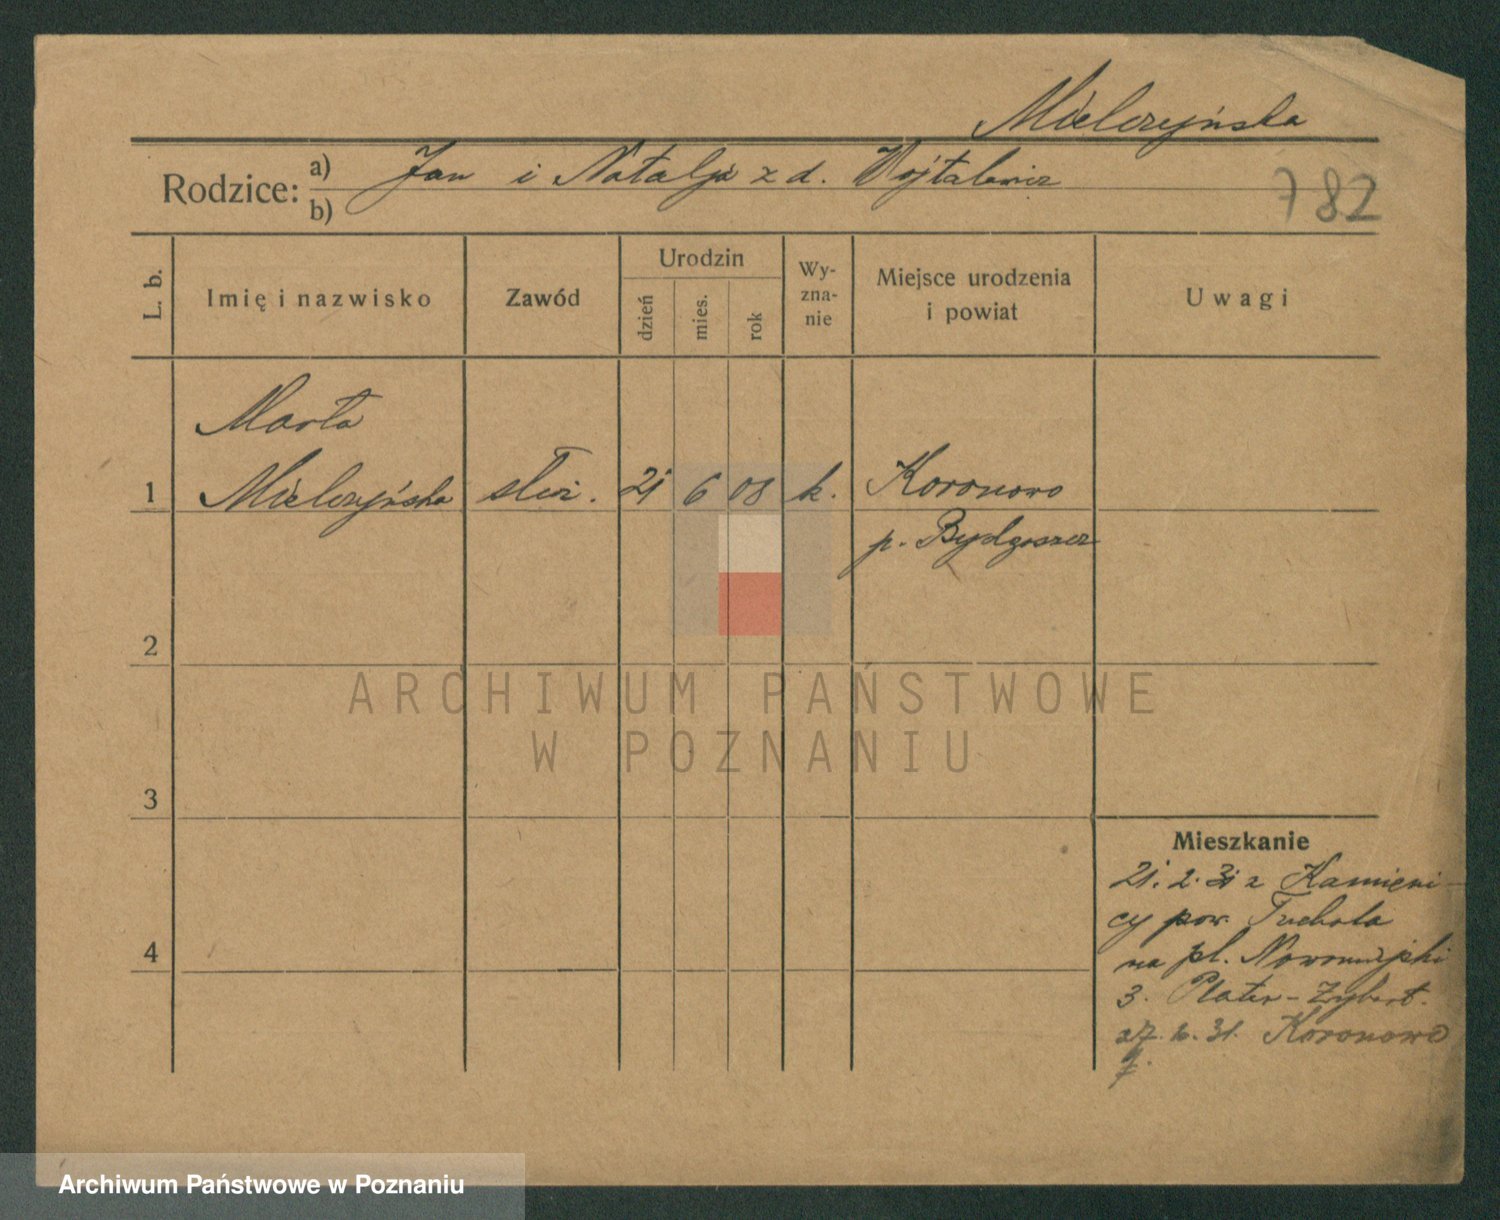 Mielczyńska
Rodzice: a) Jan i Natalja z d. Wojtalewicz
b)
782
L. b.
Imię i nazwisko
Zawód
Urodzin
dzień
mies.
rok
Wy-
zna-
nie
Miejsce urodzenia
i powiat
Uwagi
Marta
1 Mielczyńska służ. 21 6 08 k. Koronowo
p. Bydgoszcz
2
3
4
Mieszkanie
21. 2. 31 z Kamieni-
cy pow. Tuchola
na pl. Nowomiejski
3. Plater-Zyberk.
27. 6. 31. Koronowo
ARCHIWUM PAŃSTWOWE
W POZNANIU
Archiwum Państwowe w Poznaniu